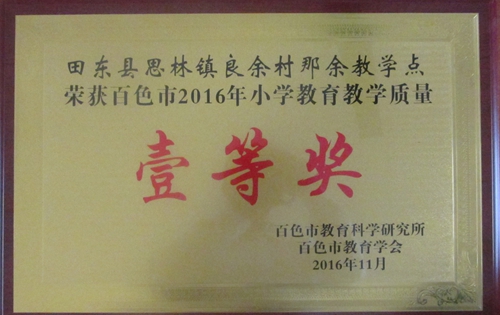 田东县思林镇良余村那余教学点
荣获百色市2016年小学教育教学质量
壹等奖
百色市教育科学研究所
百色市教育学会
2016年11月